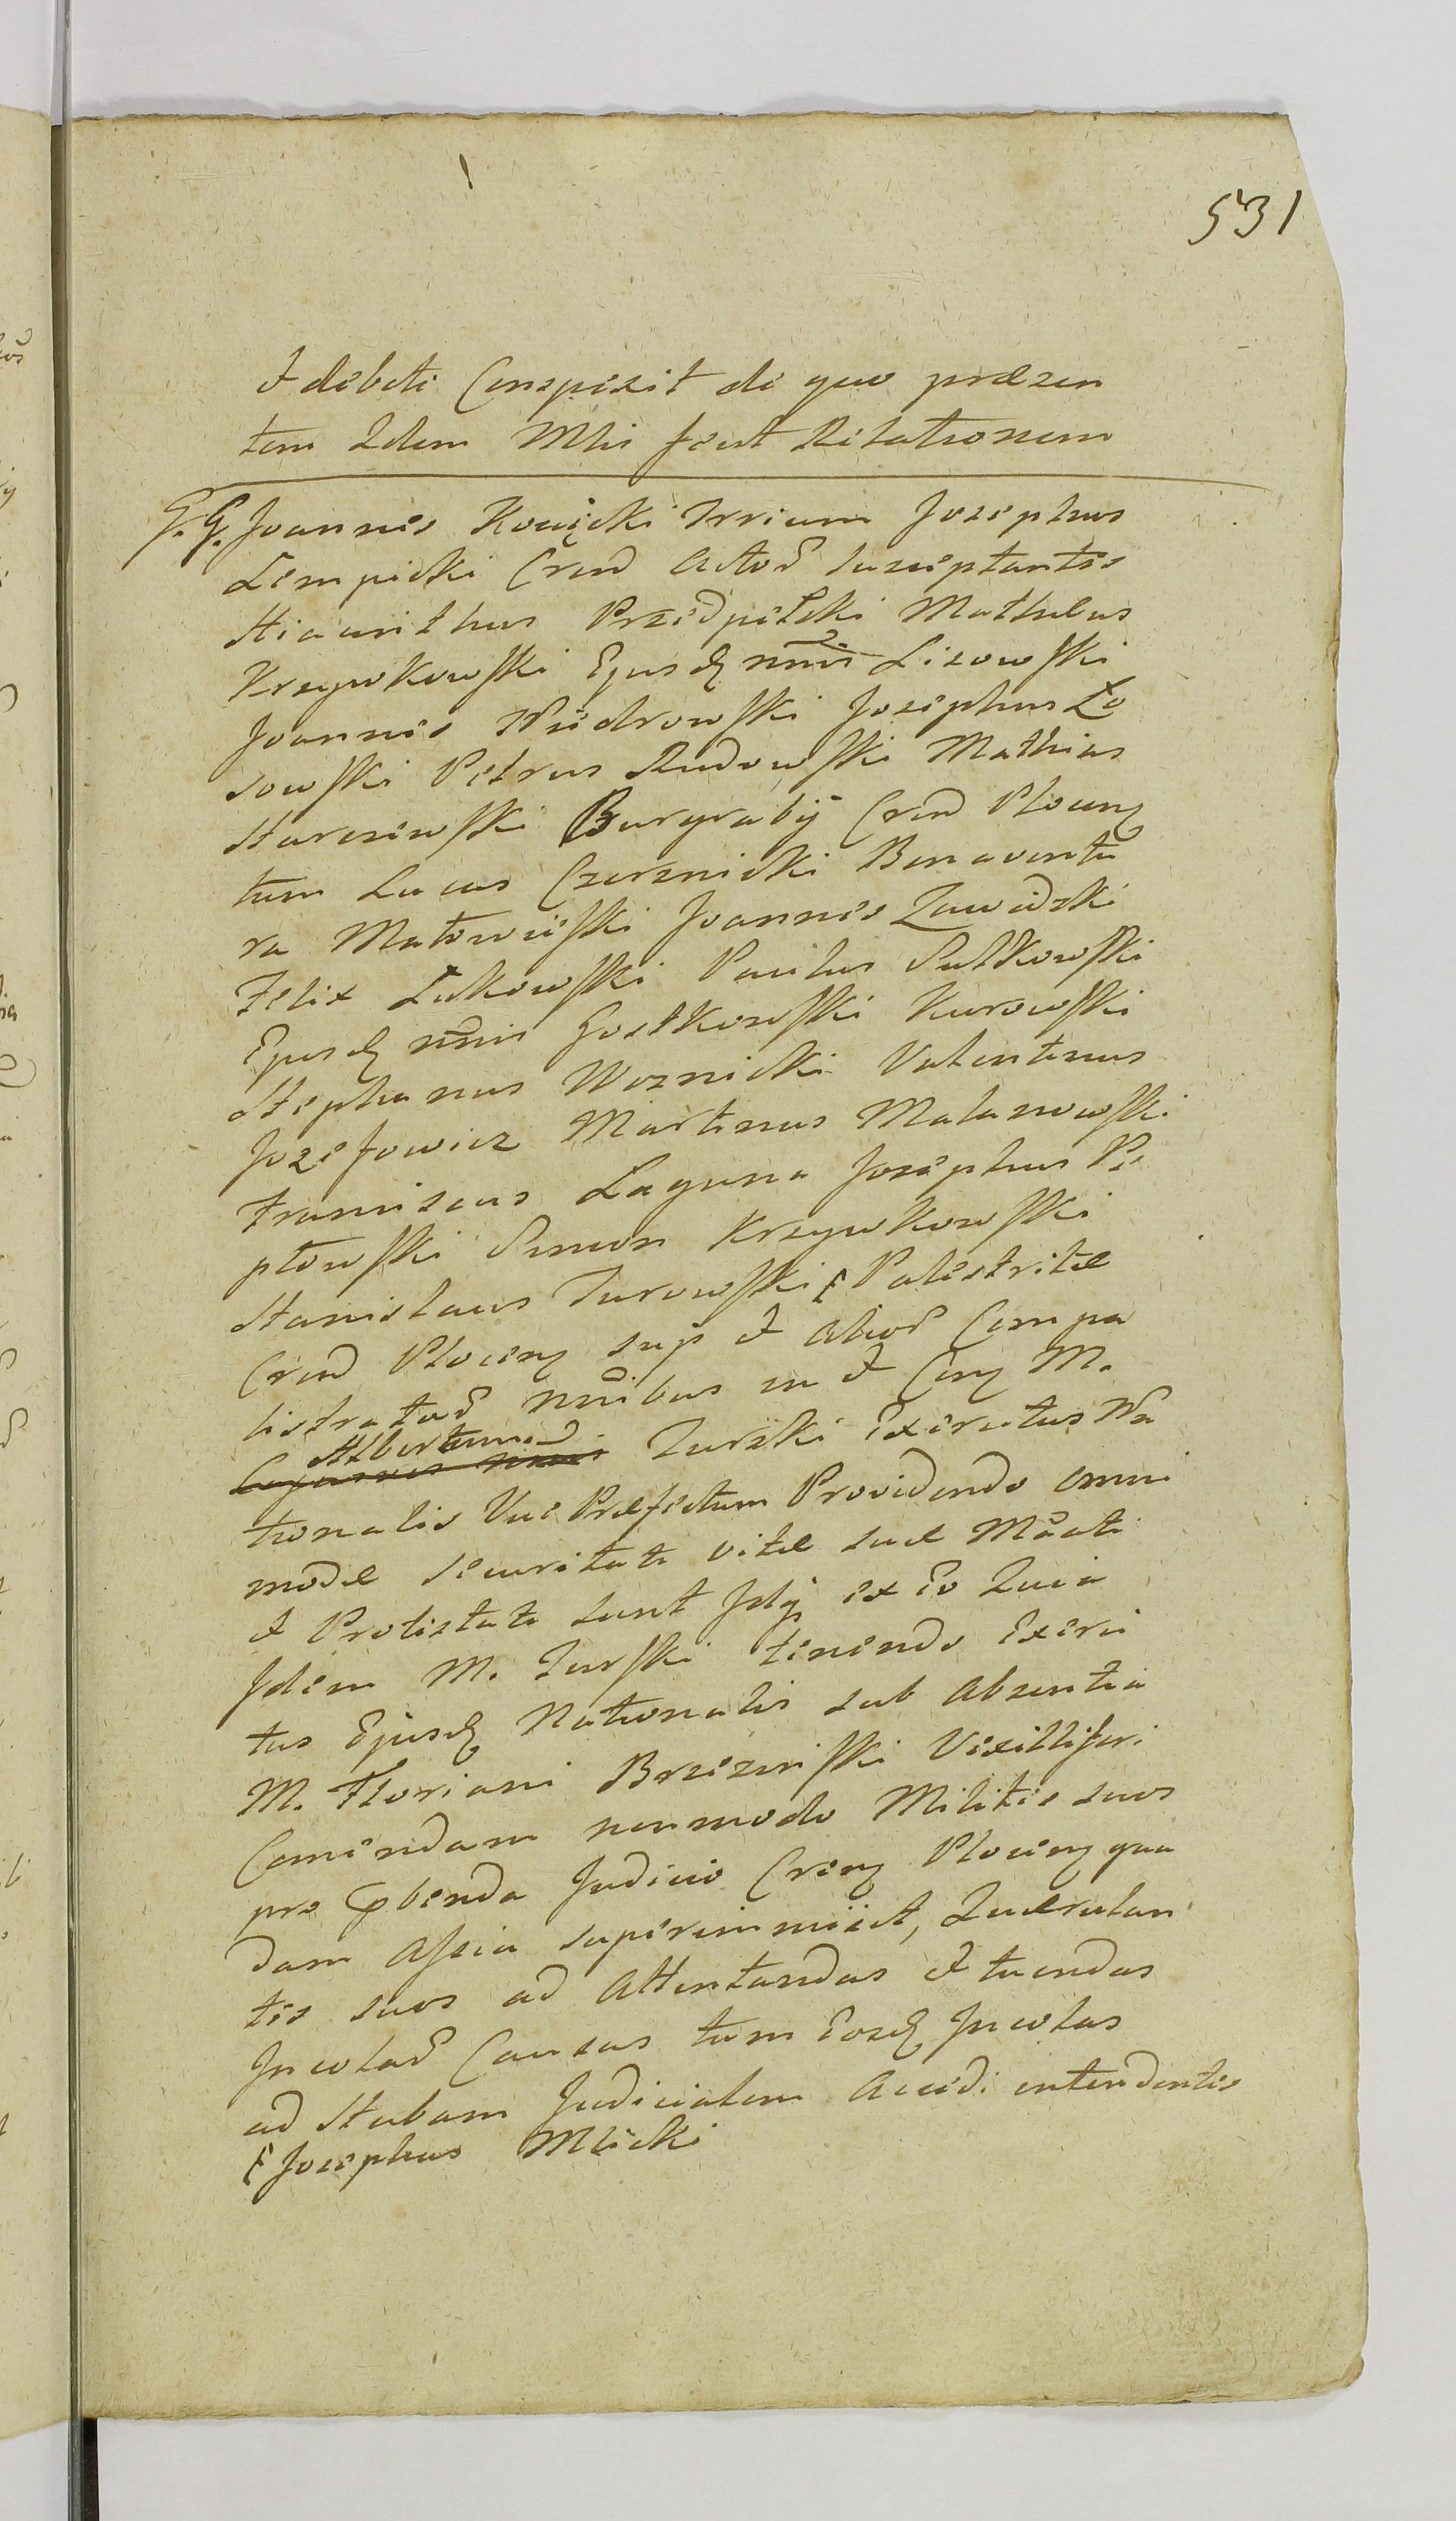 531
& debite Conspexit de quo præsen
tem Idem Mlis fecit Relationem
G. G. Joannes Kowicki Trrium Josephus
Lempicki Crens Actor Susceptantes
Hiacinthus Przedpełski Mathæus
Krzywkowski Ejusdq nnis Lisowski
Joannes Wiedrowski Josephus Lo
sowski Petrus Rudowski Mathias
Starczewski Burgrabij Cren Plocenq
tum Lucas Czerznicki Bonaventu
ra Matowieski Joannes Zawidzki
Felix Łukowski Paulus Sutkowski
Ejusdq nnis Gostkowski Kurowski
Stephanus Woznicki Valentinus
Jozefowicz Martinus Malanowski
Franciscus Laguna Josephus Pe
płowski Simon Krzywkowski
Stanislaus Turowski Palestritæ
Cren Plocenq sup & alior Compa
listrator nnibus in & Conq M.
Albertum Turski Exercitus Na
tionalis Vice Præfectum Providendo omni
modæ securitati vitæ suæ
& Protestati sunt ex Eo Quia
Idem M. Turski tenendo Exerci
tus Ejusdq Nationalis sub absentia
M. Floriani Brzezinski Vexilliferi
Comendam nonmodo Milites suos
pro Judicio Crenq Plocenq qua
dam superimmisit, Quærulan
tes suos ad Attentandas & tuendas
Incolar Causas tum Eosdq Incolas
ad Stubam Judicialem accedi intendentes
Josephus Mlicki